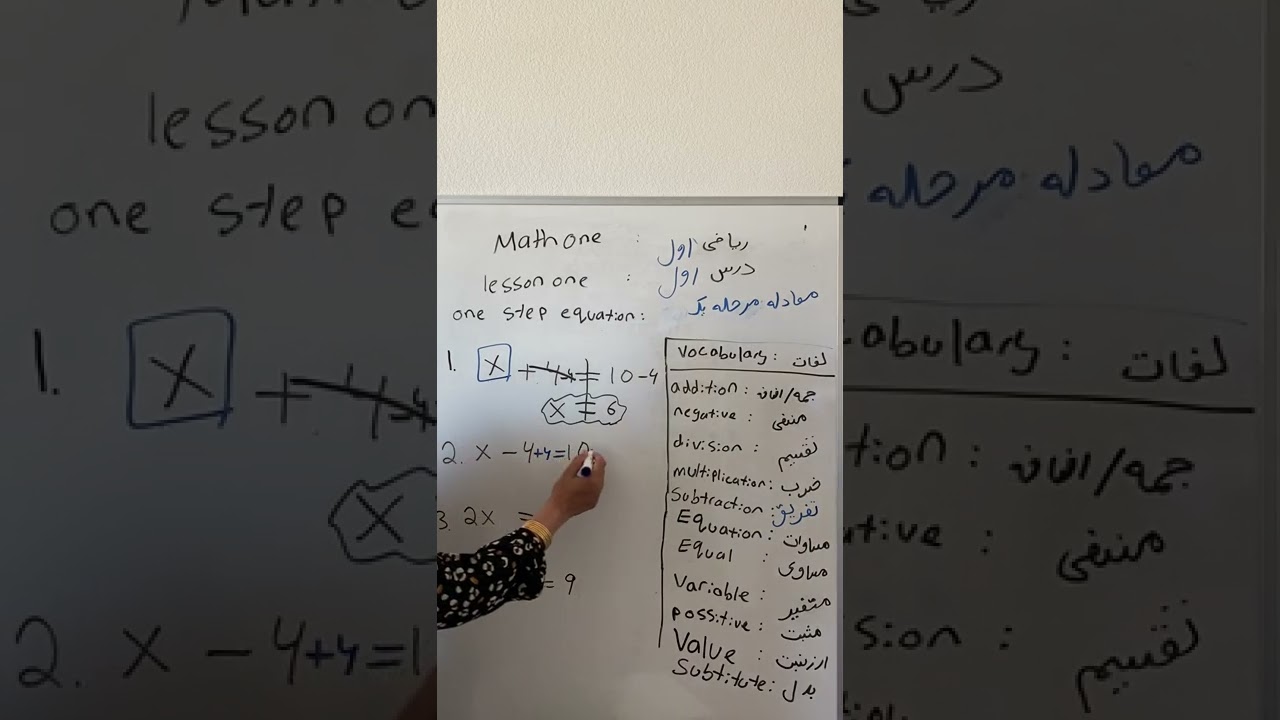 Math one : ریاضی اول
lesson one : درس اول
one step equation : معادله مرحله یک
1. X + 4-4 = 10-4
X = 6
2. X - 4+4=10
3. 2X =
= 9
Vocabulary : لغات
addition : جمع/اضافه
negative : منفی
division : تقسیم
multiplication : ضرب
Subtraction : تفریق
Equation : مساوات
Equal : مساوی
Variable : متغیر
possitive : مثبت
Value :
Substitute : بدل